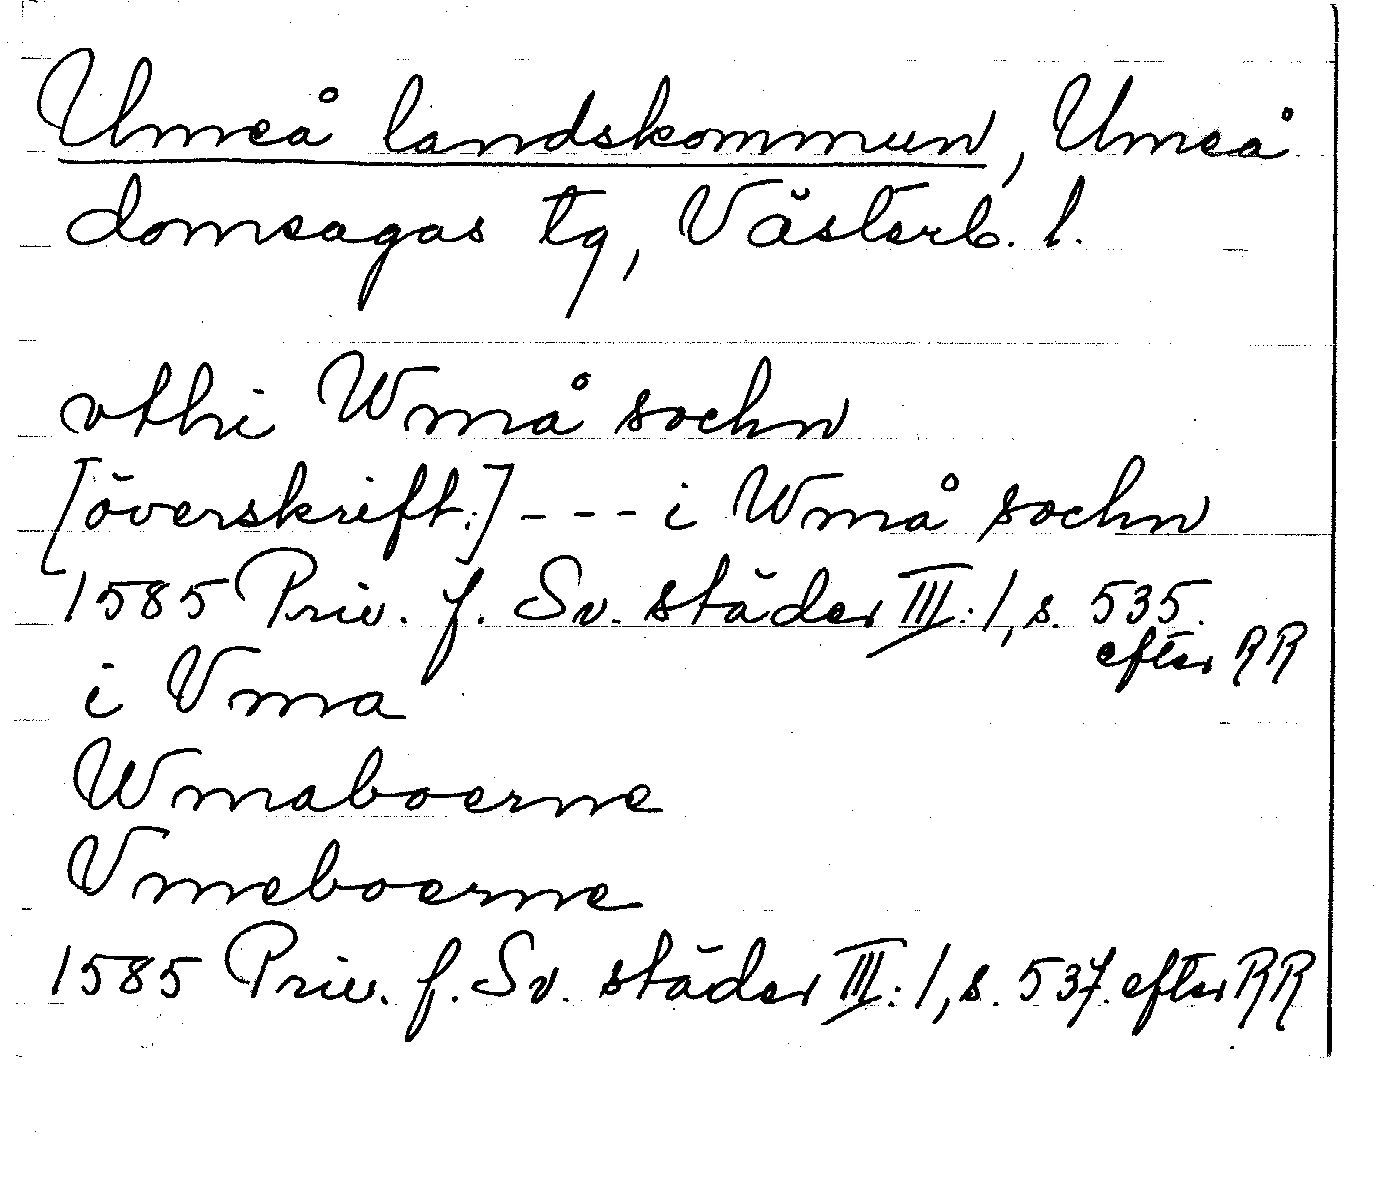 Umeå landskommun, Umeå
domsagas tg, Västerb. l.
vthi Wmå sochn
[överskrift:] - - - i Wmå sochn
1585 Priv. f. Sv. städer III:1, s. 535.
efter RR
i Vma
Wmaboerne
Vmeboerne
1585 Priv. f. Sv. städer III:1, s. 537. efter RR